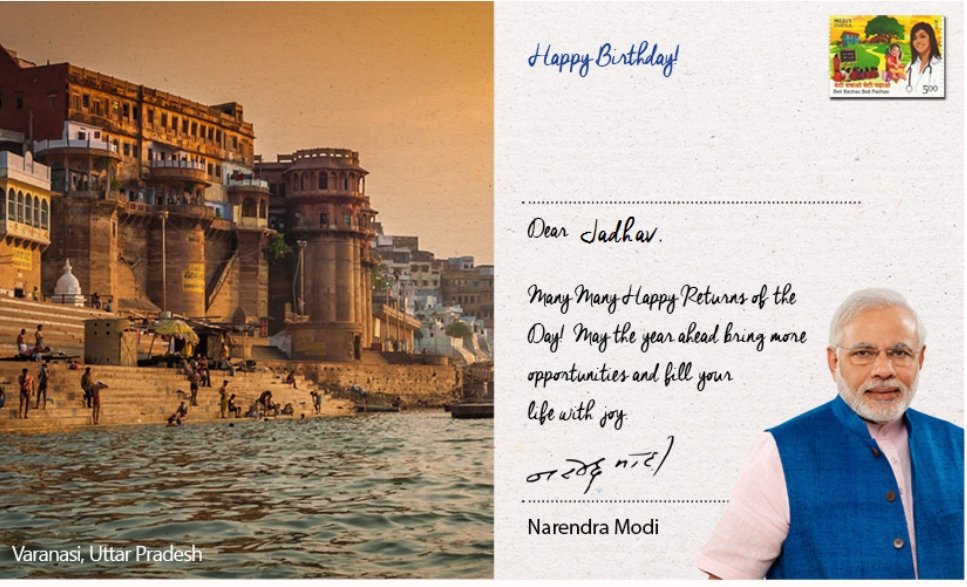 Happy Birthday!
INDIA
बेटी बचाओ बेटी पढ़ाओ
Beti Bachao Beti Padhao
5.00
Dear Jadhav.
Many Many Happy Returns of the
Day! May the year ahead bring more
opportunities and fill your
life with joy.
नरेन्द्र मोदी
Narendra Modi
Varanasi, Uttar Pradesh